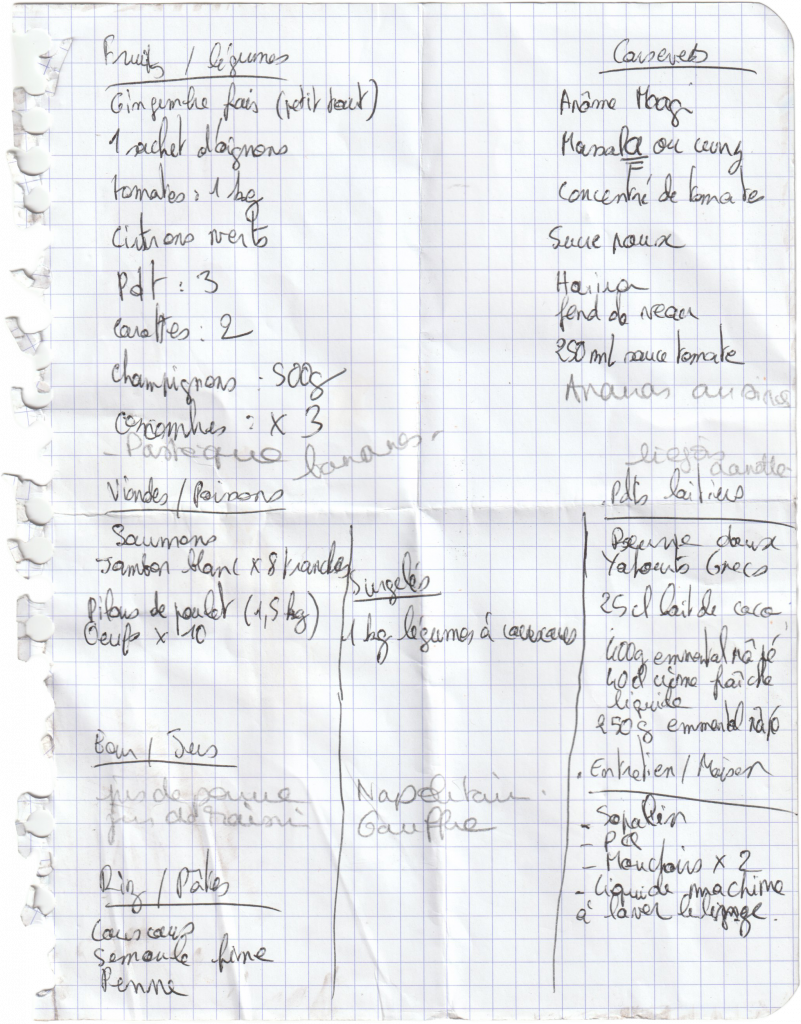 Fruits / légumes
Gingembre frais (petit bout)
1 sachet d'oignons
tomates : 1 kg
Citrons verts
Pdt : 3
carottes : 2
champignons : 500g
concombres : x 3
- Pastèque bananes.
Viandes / Poissons
Saumons
Jambon blanc x 8 tranches
Pilons de poulet (1,5 kg)
Oeufs x 10
Surgelés
1 kg légumes à couscous
Eau / Jus
jus de pomme
jus de raisin
Napolitain.
Gauffre
Riz / Pâtes
Couscous
Semoule fine
Penne
Conserves
Arôme Maggi
Massala ou curry
Concentré de tomate
Sucre roux
Harira
fond de veau
250 ml sauce tomate
Ananas au sirop
liégois
danette
Pdts laitiers
Beurre doux
Yahourts Grecs
25 cl lait de coco
400g emmental râpé
40 cl crème fraîche
liquide
250 g emmental râpé
. Entretien / Maison
- Sopalin
- PQ
- Mouchoirs x 2
- Liquide machine
à laver le linge.